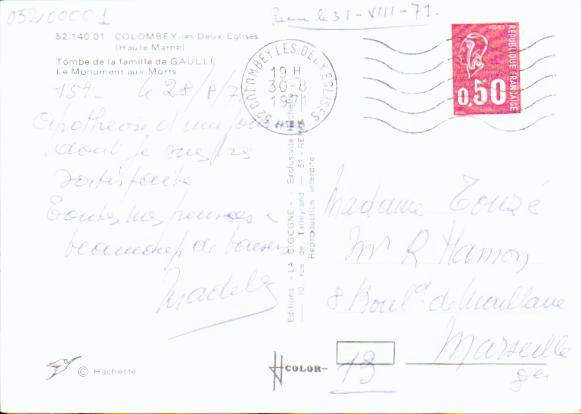 05200001
Reçu le 31-VIII-71.
52.140.01 COLOMBEY-les-Deux Eglises
(Haute Marne)
Tombe de la famille de GAULLE
Le Monument aux Morts
le 28/8/7
d'un jour
dont je
satisfaite
Toutes mes pensées
beaucoup de baisers
52 COLOMBEY LES DEUX EGLISES
19 H
30-8
1971
REPUBLIQUE FRANÇAISE
0,50
Editions "LA CIGOGNE" - Exclusivité Hachette
10, rue de Talleyrand — 51 - RE
Reproduction interdite
Madame Touzé
Mr R Hamon
8 Boul^d de Maillane
Marseille
13
© Hachette
COLOR-